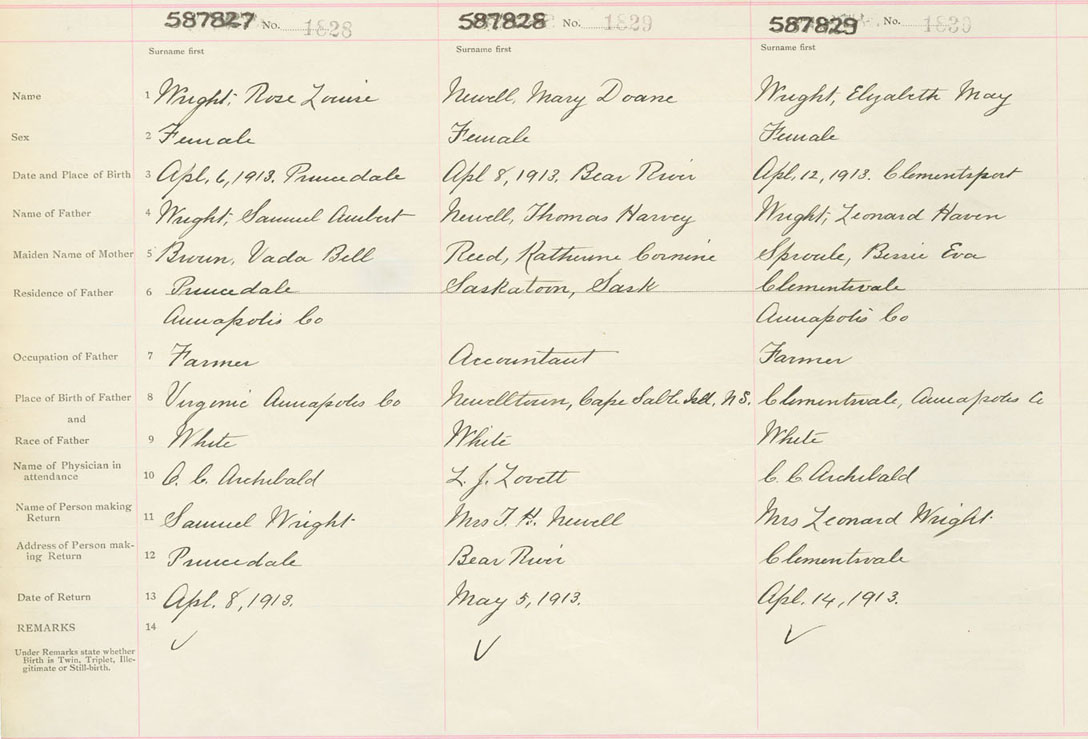 587827 No. 1828 587828 No. 1829 587829 No. 1830
Surname first Surname first Surname first
Name 1 Wright, Rose Louise Newell, Mary Doane Wright, Elizabeth May
Sex 2 Female Female Female
Date and Place of Birth 3 Apl. 6, 1913. Princedale Apl 8, 1913. Bear River Apl. 12, 1913. Clementsport
Name of Father 4 Wright, Samuel Newell, Thomas Harvey Wright, Leonard Haven
Maiden Name of Mother 5 Brown, Vada Bell Reed, Katherine Sproule, Bessie Eva
Residence of Father 6 Princedale Saskatoon, Sask Clementsvale
Annapolis Co Annapolis Co
Occupation of Father 7 Farmer Accountant Farmer
Place of Birth of Father 8 Virginie Annapolis Co Newelltown, Cape Sable Isld, N.S. Clementsvale, Annapolis Co
and
Race of Father 9 White White White
Name of Physician in
attendance 10 C. C. Archibald L. J. Lovett C. C Archibald
Name of Person making
Return 11 Samuel Wright Mrs T. H. Newell Mrs Leonard Wright
Address of Person mak-
ing Return 12 Princedale Bear River Clementsvale
Date of Return 13 Apl. 8, 1913. May 5, 1913. Apl. 14, 1913.
REMARKS 14
Under Remarks state whether
Birth is Twin, Triplet, Ille-
gitimate or Still-birth.